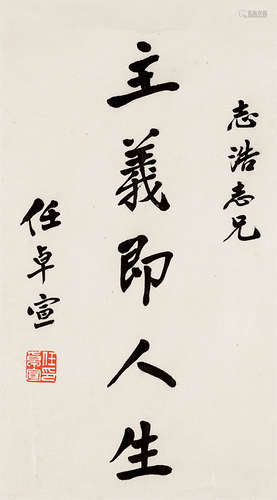 志浩志兄
主義即人生
任卓宣